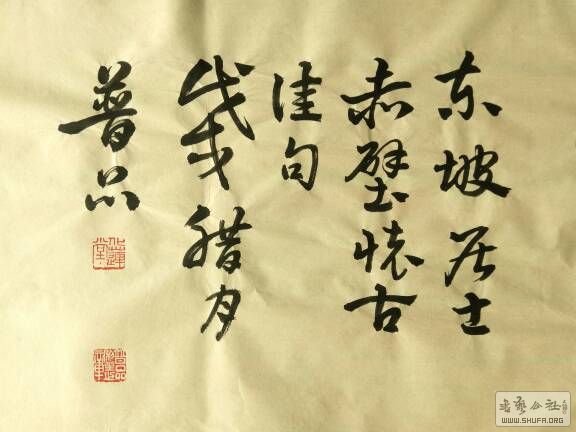 东坡居士
赤壁懷古
佳句
戊戌腊月
普品
書藝公社
WWW.SHUFA.ORG